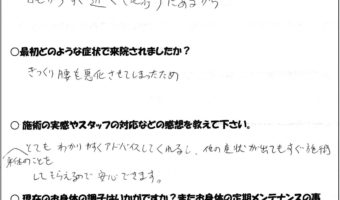 近く(地元)だから
○最初どのような症状で来院されましたか？
ぎっくり腰を悪化させてしまったため
○ 施術の実感やスタッフの対応などの感想を教えて下さい。
とても わかりやすくアドバイスしてくれるし、他の症状が出てもすぐ施術
身体のことを
してもらえるので 安心できます。
○ 現在のお身体の調子はいかがですか？またお身体の定期メンテナンスの事